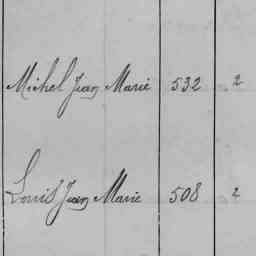 Michel Jean Marie 532 2
Louis Jean Marie 508 2